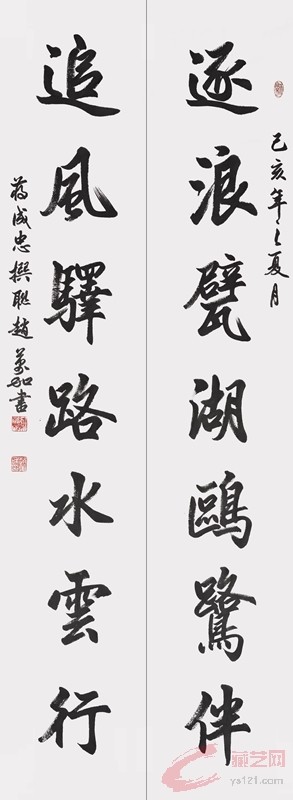 己亥年之夏月
逐浪甓湖鷗鷺伴
追風驛路水雲行
蔣成忠撰聯趙萬如書
藏艺网
ys121.com